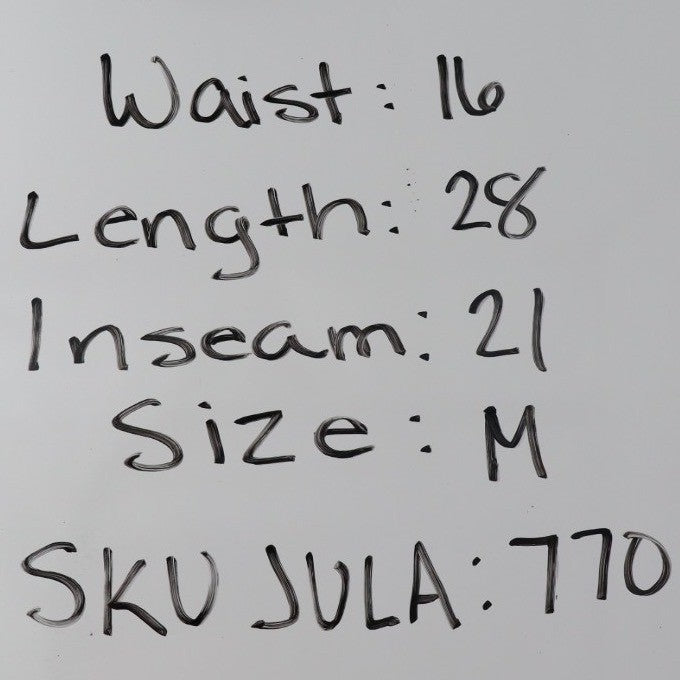 Waist: 16
Length: 28
Inseam: 21
Size: M
SKU JULA: 770